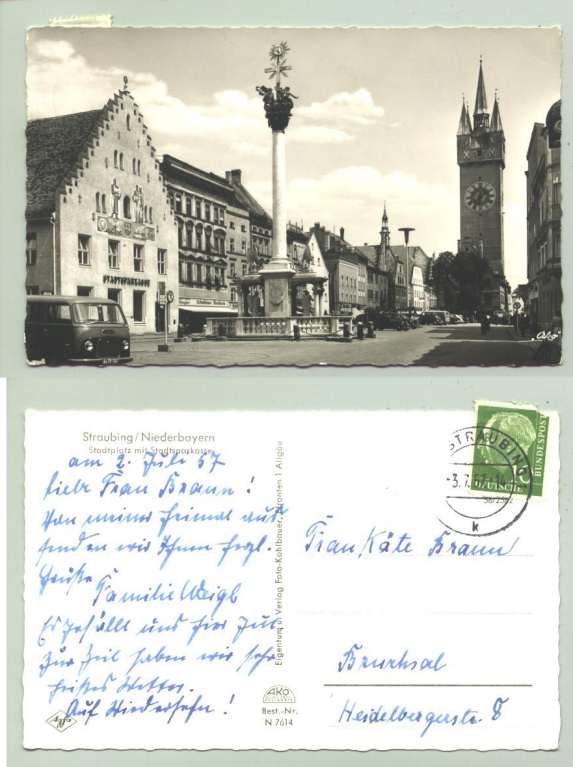 STADTSPARKASSE
Straubing/Niederbayern
Stadtplatz mit Stadtsparkasse
am 2. Juli 57
Liebe Frau Braun!
Von unserer Heimat aus
senden wir Ihnen herzl.
Grüße
Familie Weigl
Es gefällt uns hier gut
Zur Zeit haben wir sehr
heißes Wetter.
Auf Wiedersehn!
Agfa
Eigentum u. Verlag Foto-Kohlbauer, Pfronten i. Allgäu
AKO
Best.-Nr.
N 7614
STRAUBING
-3.7.57-14
k
DEUTSCHE
BUNDESPOST
Frau Käte Braun
Bruchsal
Heidelbergerstr. 8